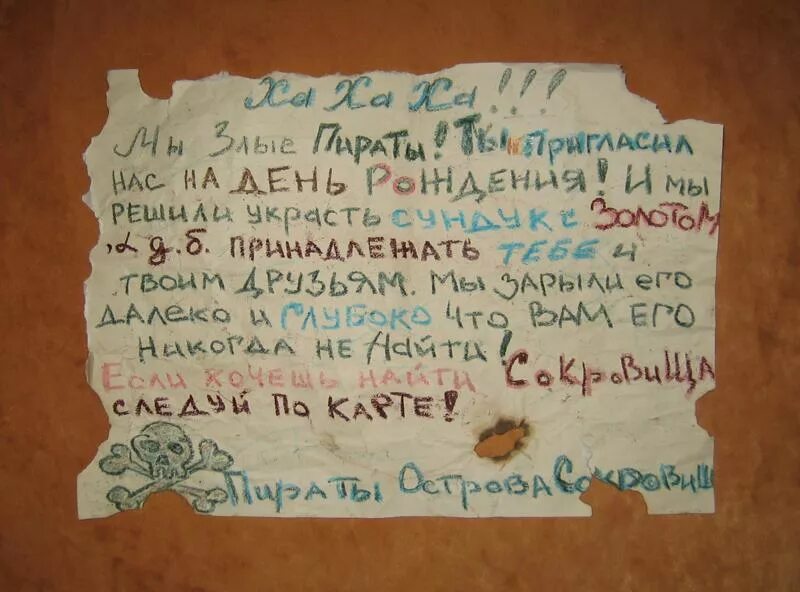 Ха Ха Ха!!!
Мы Злые Пираты! Ты пригласил
нас на День Рождения! И мы
решили украсть сундук с Золотом
, а д.б. принадлежать тебе и
твоим друзьям. Мы зарыли его
далеко и глубоко что вам его
никогда не найти!
Если хочешь найти Сокровища
следуй по карте!
Пираты Острова Сокровищ